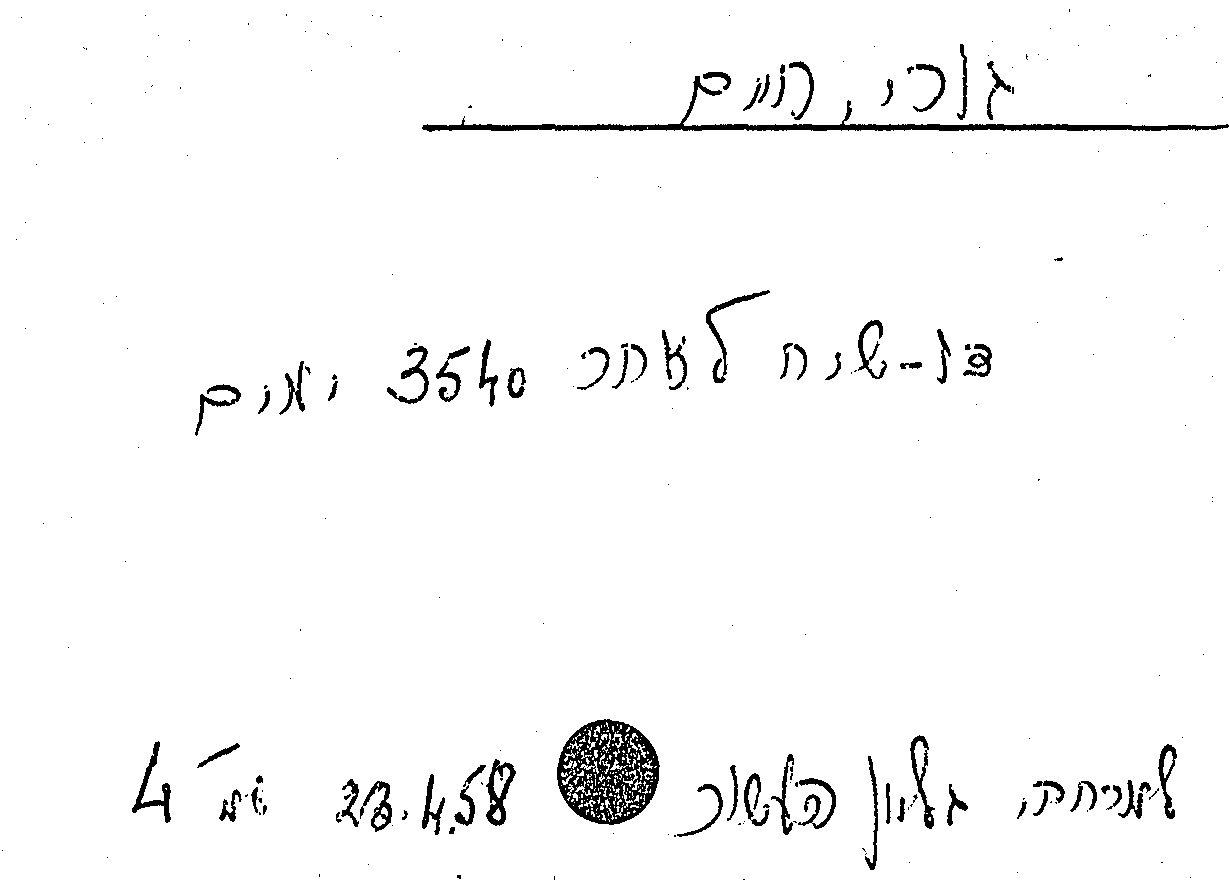 גורי, חיים
דו-שיח לאחר 3540 ימים
למרחב, גליון העשור 23.4.58 עמ' 4